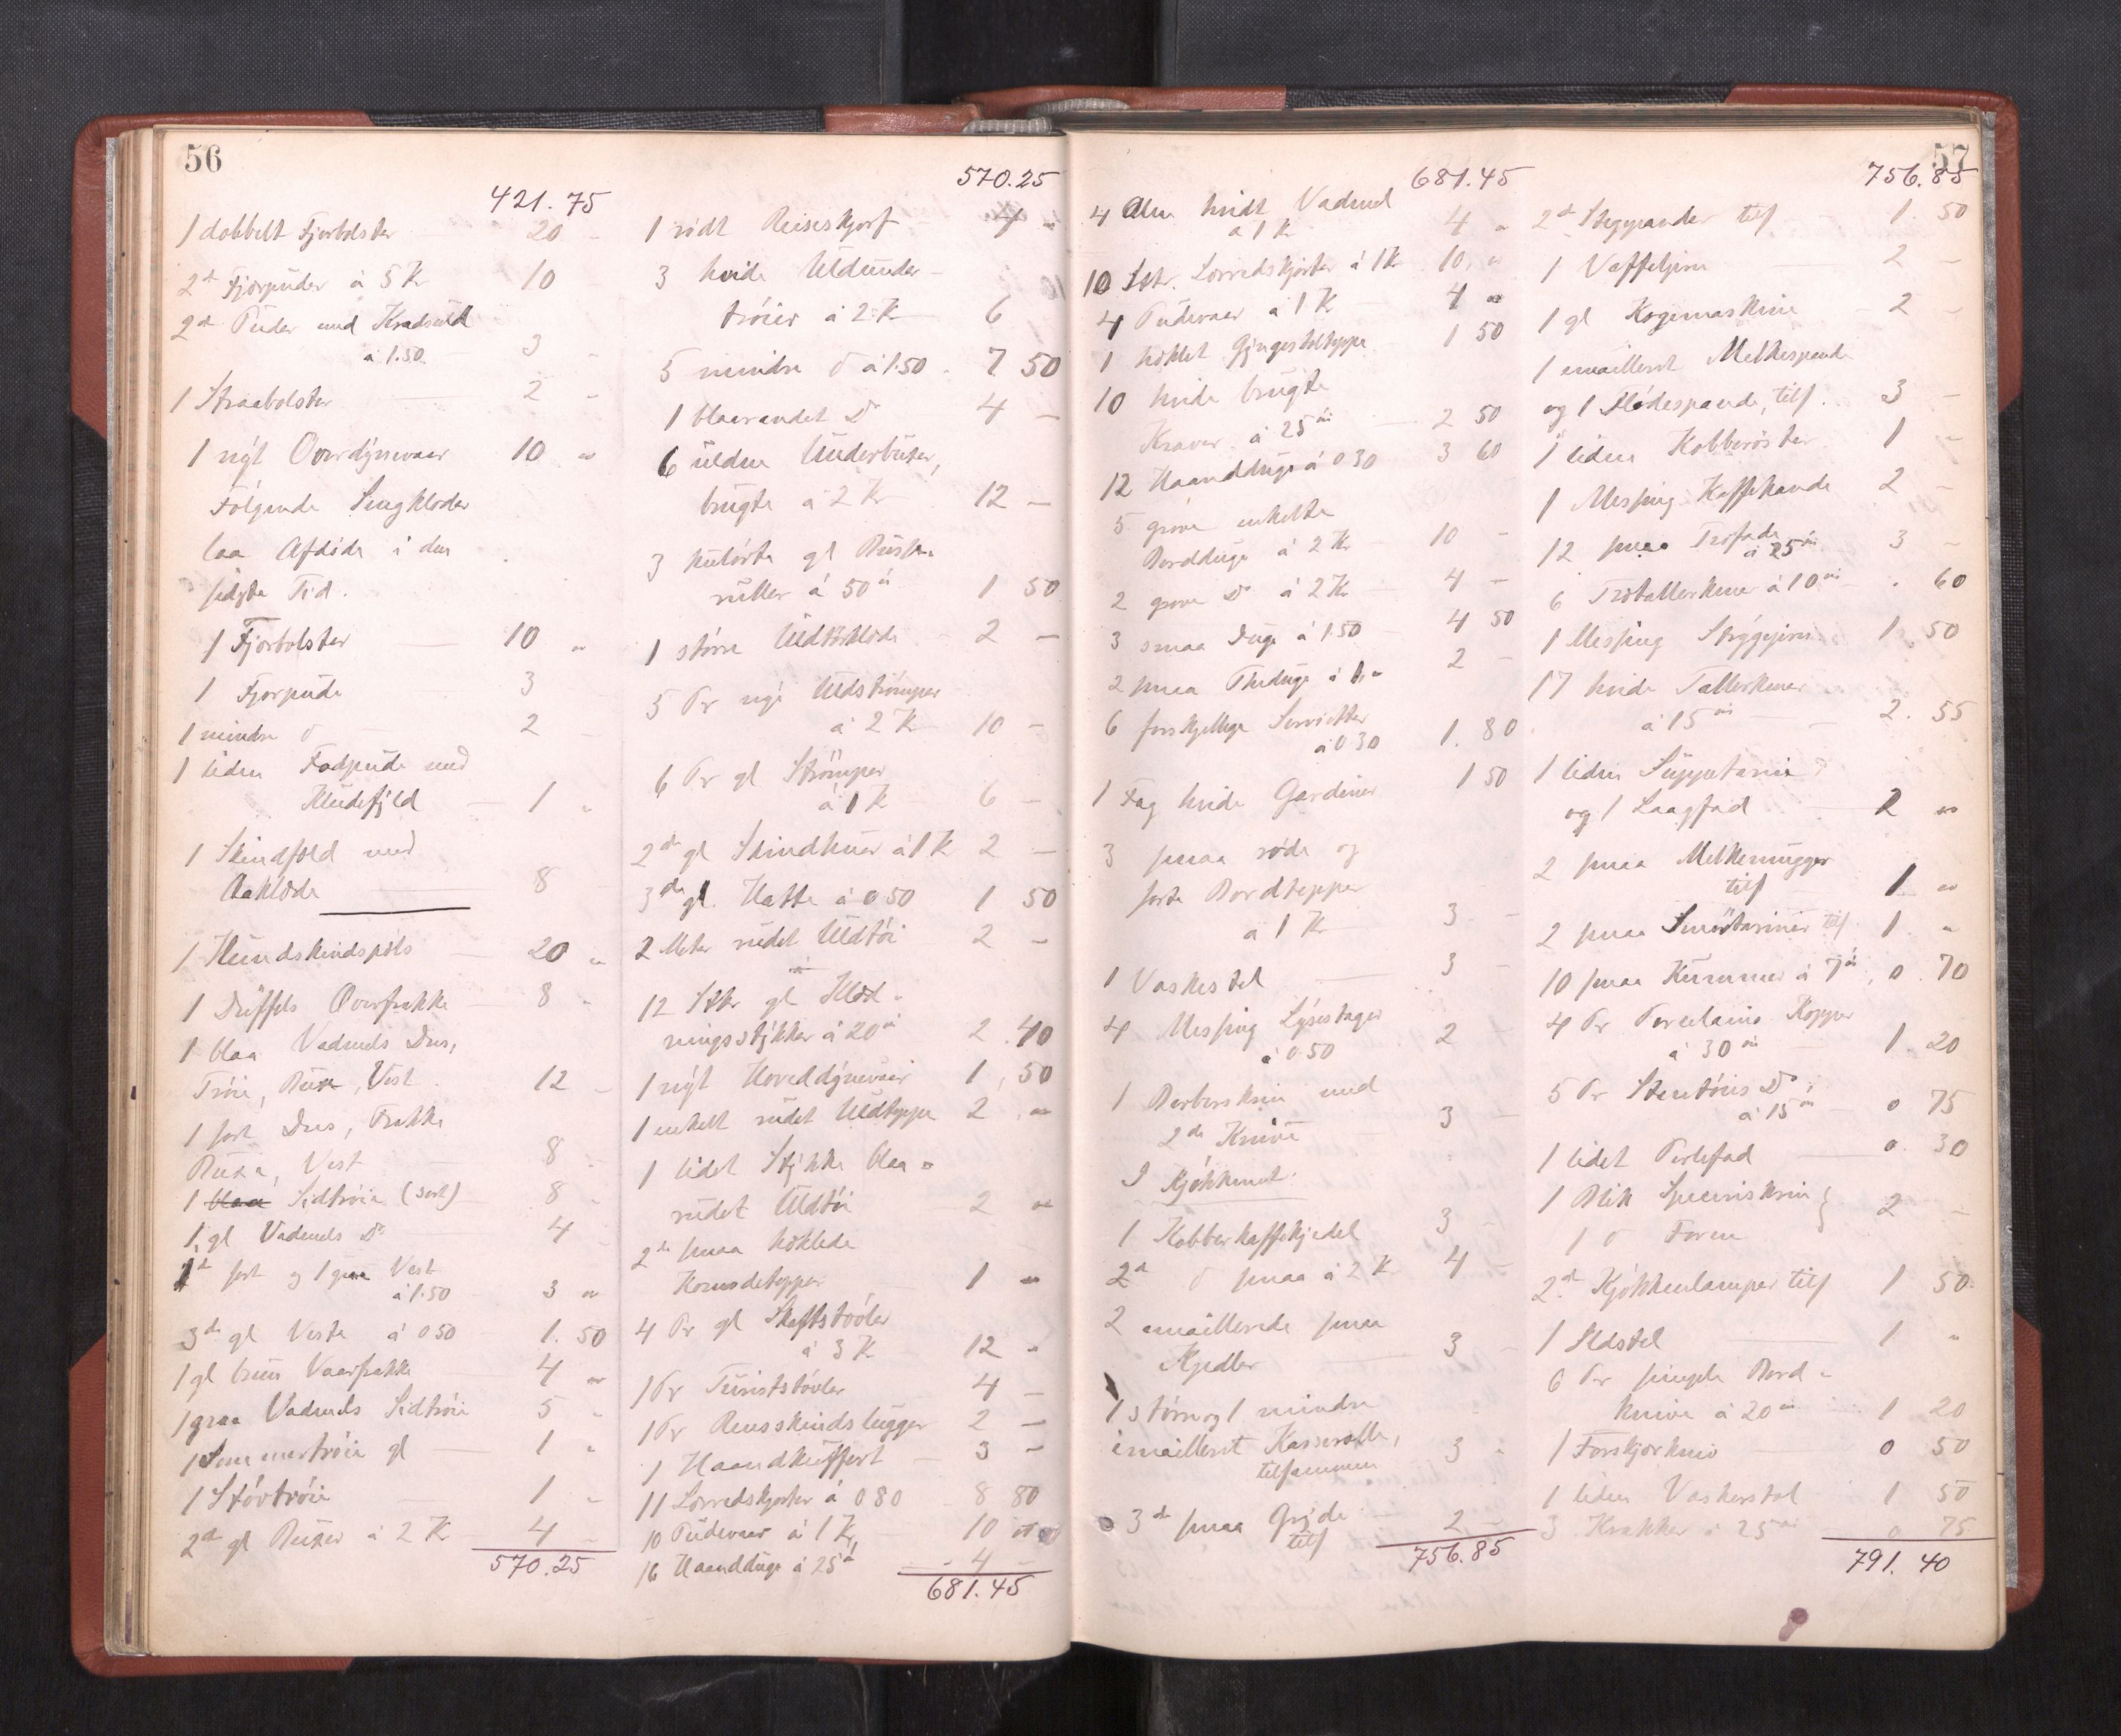 56
421.75
1 dobbelt Fjærbolster 20 -
2de Fjærpuder à 5 Kr 10
2de Puder med Krøluld
à 1.50 3 -
1 Straabolster 2 -
1 nyt Overdynevaar 10 "
Følgende Sengklæder
laa Afdøde i den
sidste Tid.
1 Fjærbolster 10 "
1 Fjærpude 3
1 mindre do 2 -
1 liden Fodpude med
1 "
1 Skindfæld med
Aaklæde 8
1 Hundskindspels 20 "
1 Duffels Overfrakke 8 "
1 blaa Vadmels Dres,
Trøie, Buxe, Vest 12 -
1 sort Dres, Frakke
Buxe, Vest 8 -
1 blaa Sidtrøie (sort) 8 -
1 gl Vadmels Do 4 -
1 sort og 1 graa Vest
à 1.50 3 "
3de gl Veste à 0 50 1. 50
1 gl brun Vaarfrakke 4 "
1 graa Vadmels Sidtrøie 5 "
1 Sommertrøie gl 1 "
1 Støvtrøie 1 -
2de gl Buxer à 2 Kr 4 -
570.25
570.25
1 rødt Reiseskjærf 4 "
3 hvide Uldunder-
trøier à 2 Kr 6
5 mindre do à 1.50 7 50
1 blaarandet Do 4 -
6 uldne Underbuxer,
brugte à 2 Kr 12 -
3 kulørte gl
à 50 ø 1 50
1 større Uldtørklæde 2 -
5 Pr nye Uldstrømper
à 2 Kr 10 -
6 Pr gl Strømper
à 1 Kr 6 -
2de gl Skindhuer à 1 Kr 2 -
3de gl. Hatte à 0 50 1 50
2 Meter rudet Uldtøi 2 -
12 Stkr gl Klæd-
ningsstykker à 20 ø 2. 40
1 nyt Hoveddynevaar 1, 50
1 enkelt rudet Uldteppe 2 "
1 lidet Stykke blaa-
rudet Uldtøi 2 "
2de smaa heklede
1 "
4 Pr gl Skaftstøvler
à 3 Kr 12 "
1 Pr Turiststøvler 4 -
1 Pr Rensskindslugger 2 -
1 Haandkuffert 3 -
11 Lærredskjorter à 0 80 8 80
10 Pudevaar à 1 Kr, 10 "
16 Haandduge à 25 ø 4 -
681.45
57
681.45
4 Alen hvidt Vadmel
à 1 Kr 4 "
10 Stkr. Lærredskjorter à 1 Kr 10. "
4 Pudevaar à 1 Kr 4 "
1 heklet Gyngestolteppe 1 50
10 hvide brugte
Kraver à 25 ø 2 50
12 Haandduge à 0 30 3 60
5 grove enkelte
Bordduge à 2 Kr 10 -
2 grove Do à 2 Kr 4 -
3 smaa Duge à 1.50 4 50
2 smaa Theduge à 1. " 2 -
6 forskjellige Servietter
à 0 30 1. 80
1 Fag hvide Gardiner 1 50
3 smaa røde og
sorte Bordtepper
à 1 Kr 3 -
1 Vaskestel 3 -
4 Messing Lysestager
à 0.50 2 -
1 Barberskrin med
2de Knive 3 -
I Kjøkkenet:
1 Kobberkaffekjedel 3 -
2de do smaa à 2 Kr 4 -
2 emaillerede smaa
Kjedler 3 -
1 større og 1 mindre
emailleret Kasserolle,
tilsammen 3 "
3de smaa Gryde
tils 2 -
756.85
756.85
2de Stegepander tils 1. 50
1 Vaffeljern 2 -
1 gl Kogemaskine 2 -
1 emailleret Melkespand
og 1 Flødespande, tils. 3 -
1 liden Kobberøster 1 -
1 Messing Kaffekande 2 -
12 smaa Træfade
à 25 ø 3 -
6 Trætallerkener à 10 ø . 60
1 Messing Strygejern 1. 50
17 hvide Tallerkener
à 15 ø 2. 55
1 liden Suppeterrin
og 1 Laagfad 2 "
2 smaa Melkemugger
tils 1 "
2 smaa Smørteriner tils 1 "
10 smaa Kummer à 7 ø, 0. 70
4 Pr Porcelains Kopper
à 30 ø 1. 20
5 Pr Stentøis Do,
à 15 ø 0 75
1 lidet Perlefad 0. 30
1 Blik Speceriskrin }
1 do Form } 2 -
2de Kjøkkenlamper tils 1 50.
1 Ildstel 1 "
6 Pr simple Bord-
knive à 20 ø 1 20
1 Forskjærkniv 0 50
1 liden Vaskerstol 1 50
3 Krakker à 25 ø 0 75
791. 40